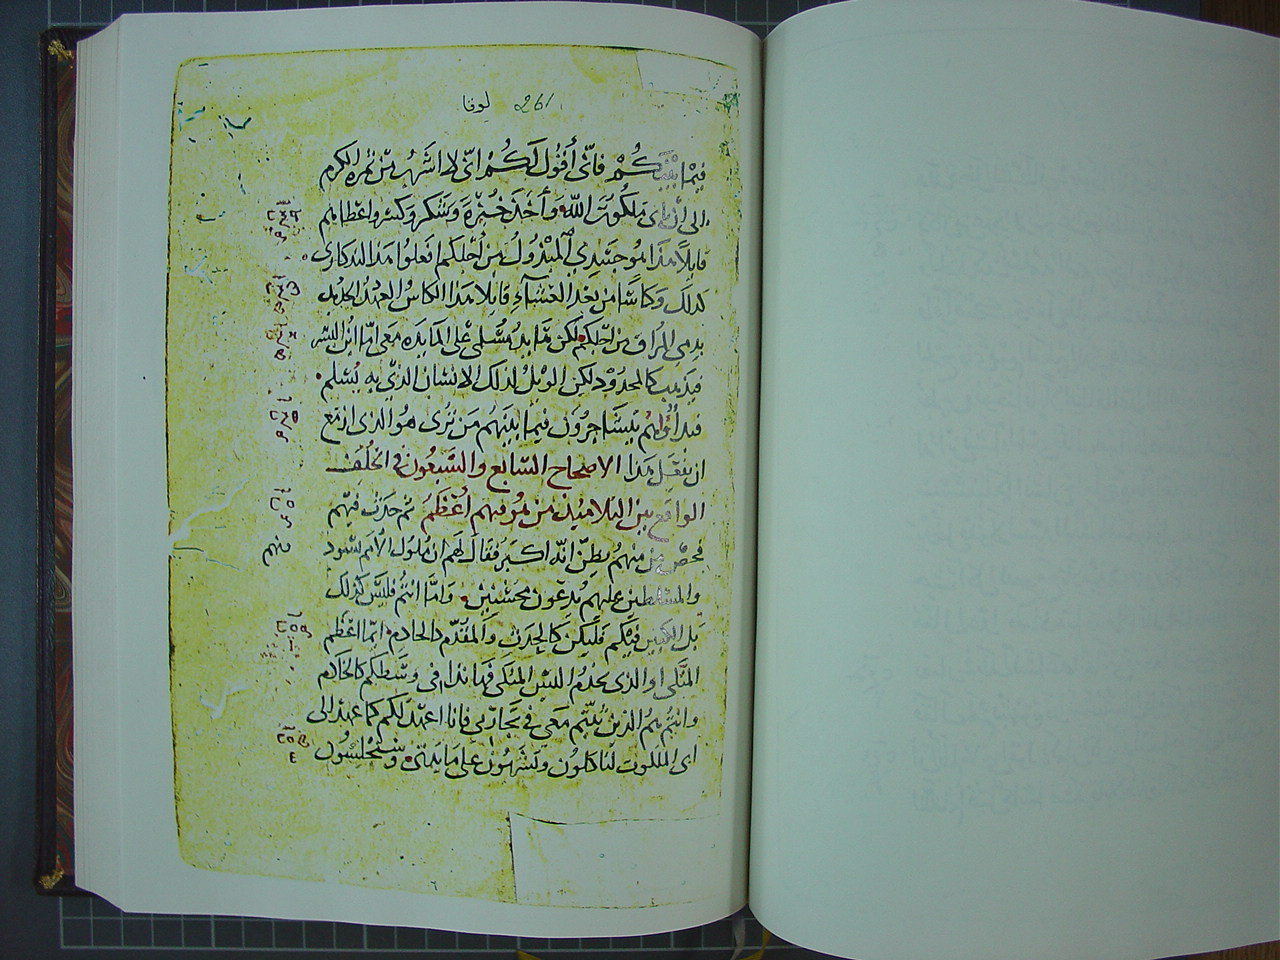 لوقا 261
فيما بينكم فانى أقول لكم انى لا اشرب من ثمرة الكرم
الى ان ياتى ملكوت الله وأخذ خبزة وشكر وكسر واعطاهم
قايلا هذا هو جسدي المبذول من اجلكم فعلوا هذا لتذكارى
كذلك وكاسا من بعد العشاء قايلا هذا الكاس العهد الجديد
بدمى المراق من اجلكم لكن ها يد مسلمى على المايده معى اما ابن البشر
فيذهب كالمحدود لكن الويل لذلك الانسان الذي به يسلم
فبدأوا يتساجرون فيما بينهم من ترى هو الذى ازمع
ان يفعل هذا الاصحاح السابع والسبعون فى الخلف
الواقع بين التلاميذ من هو فيهم أعظم ثم حدث فيهم
فحص من منهم يظن انه اكبر فقال لهم ان ملوك الأمم تسود
والمسلطين عليهم يدعون محسنين واما انتم فليس كذلك
بل الكبير فيكم فليكن كالحدث والمقدم كالخادم ايما اعظم
المتكى او الذى يخدم اليس المتكى فهانذا فى وسطكم كالخادم
وانتم هم الذين ثبتم معى فى تجاربى فانا اعهد لكم كما عهد الى
ابى الملكوت لتاكلون وتشربون على مايدتى وستجلسون